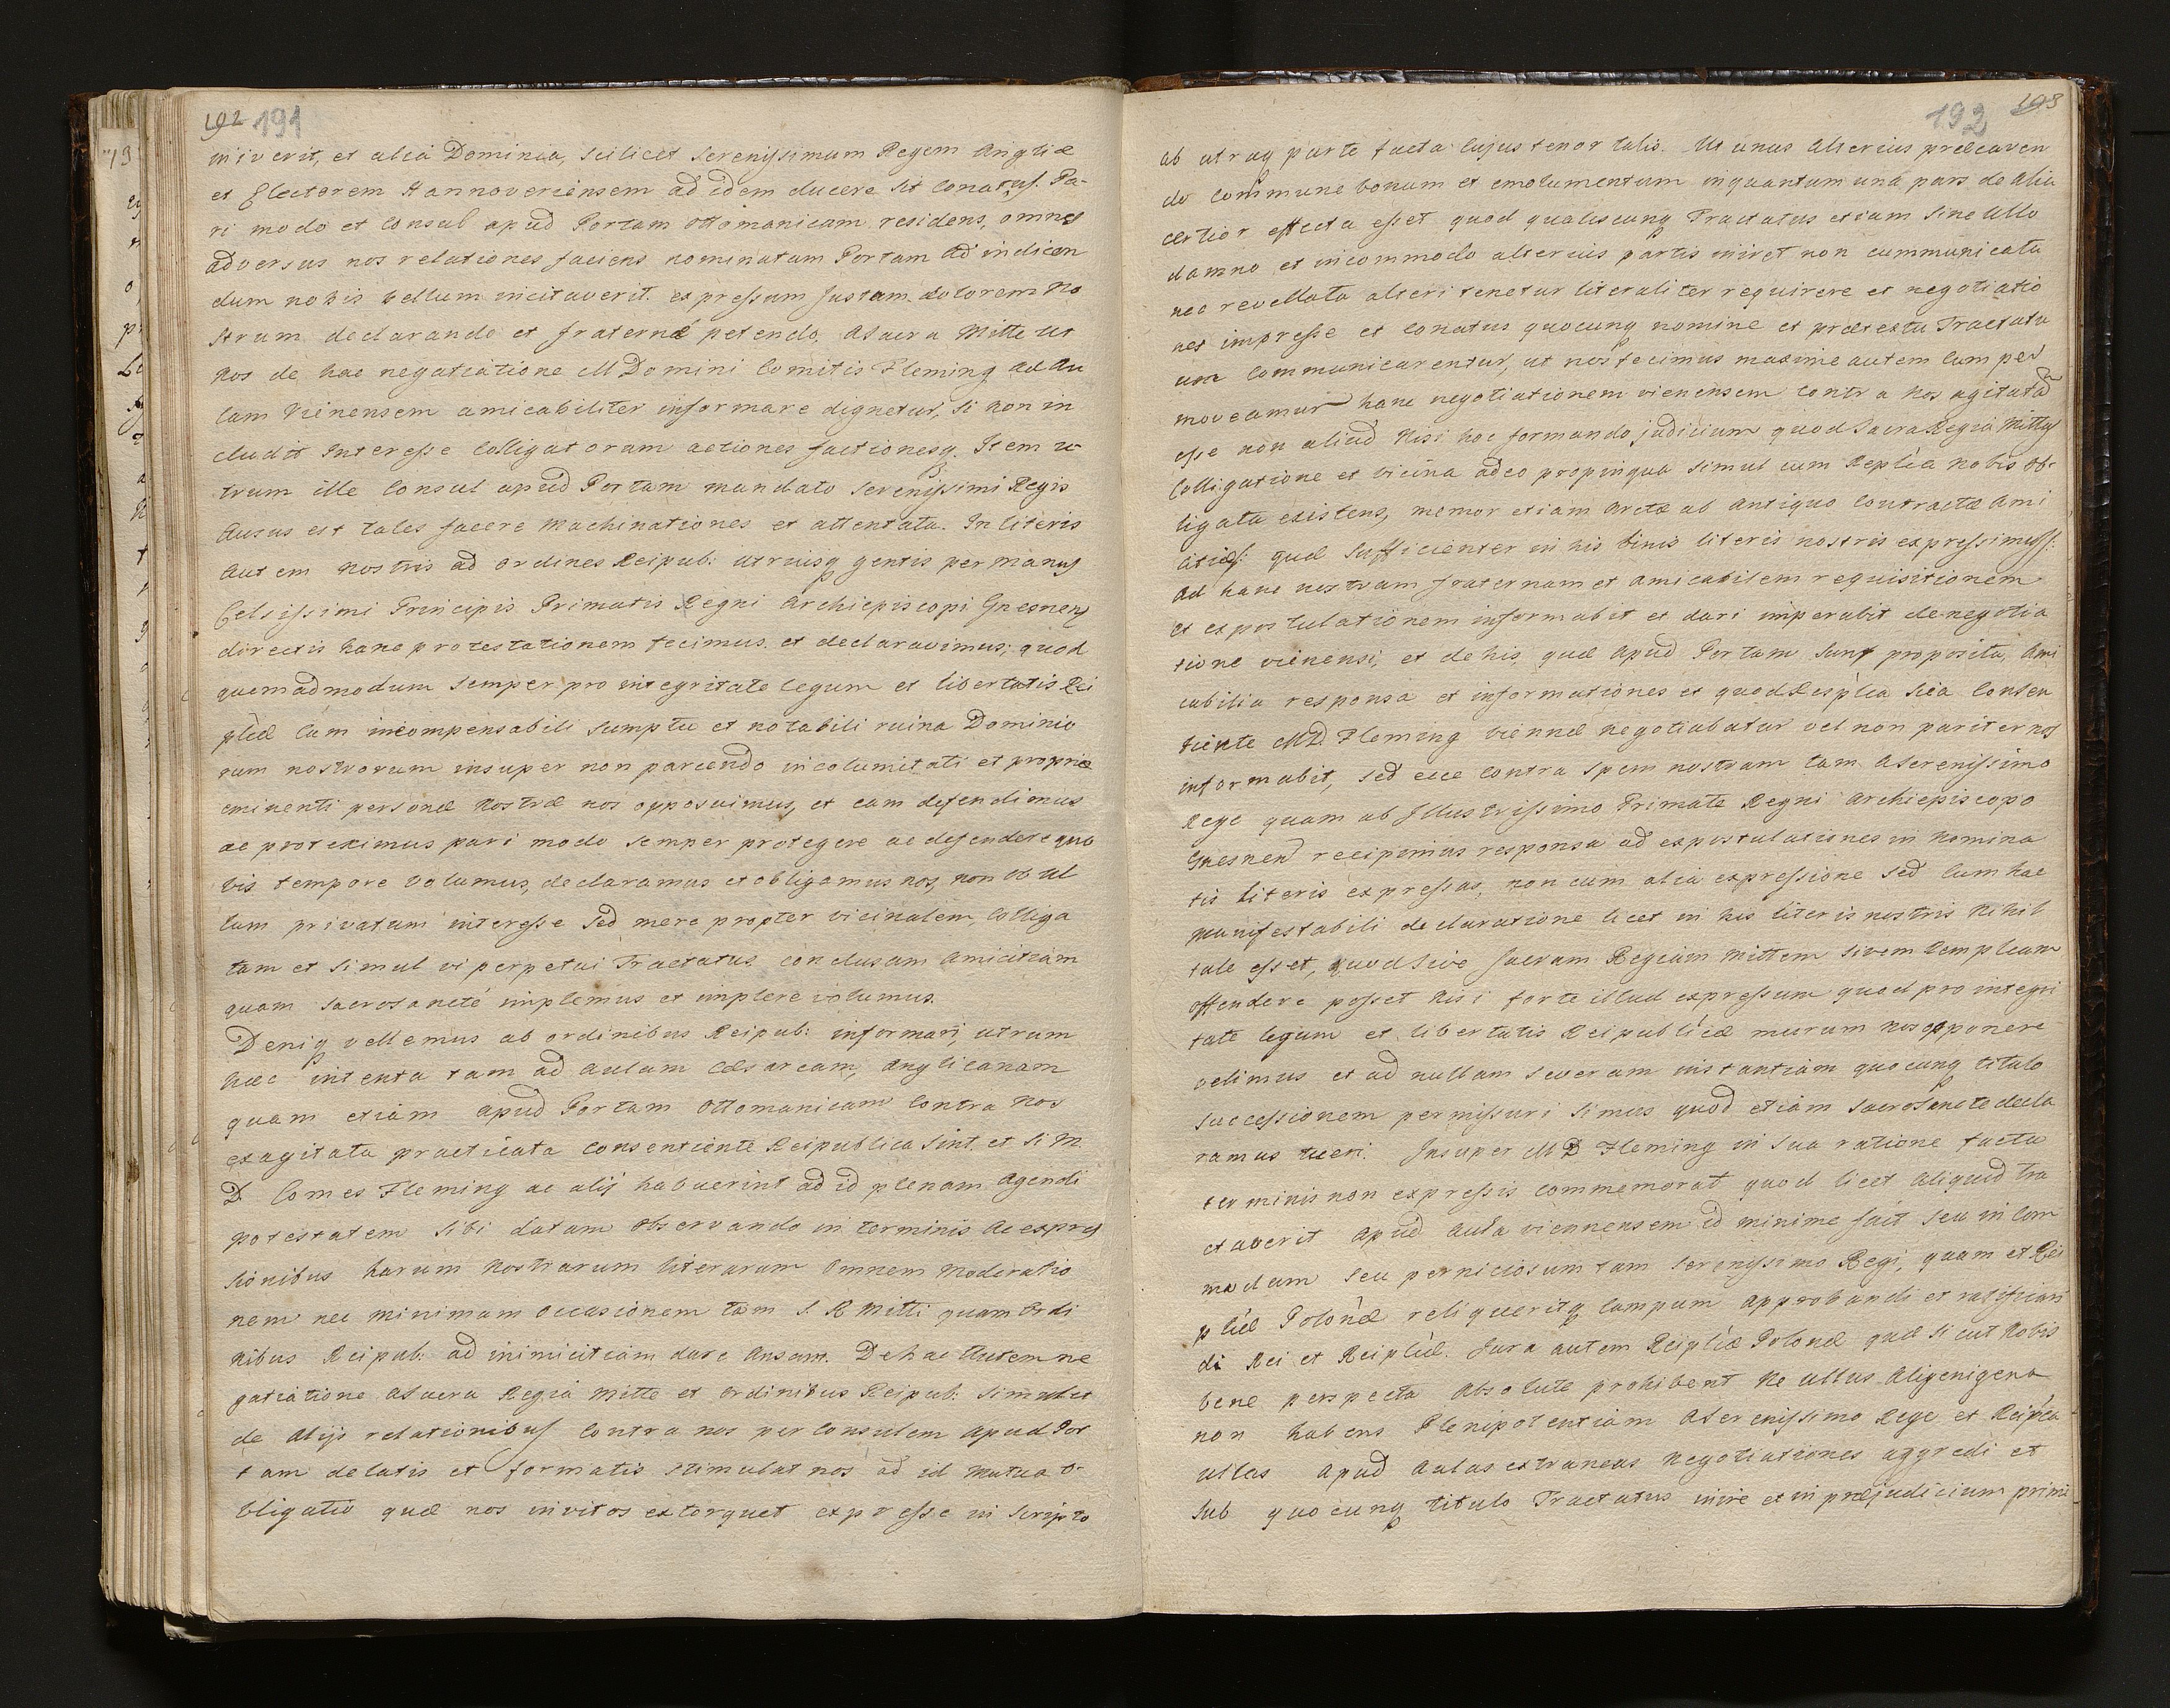 192 191
iniverit, et alia Dominia, scilicet Serenissimum Regem Angliæ
et Electorem Hannoveriensem ad idem ducere sit conatus. Pa-
ri modo et Consul apud Portam Ottomanicam residens, omnes
adversus nos relationes faciens nominatam Portam ad indicen
dum nobis bellum incitaverit. expressum justam dolorem no
strum declarando et fraternè petendo, a Sacra Mitte ut
nos de hac negatiatione M Domini Comitis Fleming ad Au
lam Vienensem amicabiliter informare dignetur, si non in
cludit Interesse Colligatorum actiones factionesq. Item u-
trum ille Consul apud Portam mandato Serenissimi Regis
Ausus est tales facere machinationes et attentata. In literis
autem nostris ad ordines Reipub: utriusq gentis per manus
Celsissimi Principis Primatis Regni Archiepiscopi Gnesnens
directis hanc protestationem fecimus et declaravimus; quod
quemadmodum semper pro integritate legum et libertatis Rei
plicæ cum incompensabili sumptu et notabili ruina Dominio
rum nostrorum insuper non parcendo incolumitati et propriæ
eminenti personæ nostræ nos opposuimus, et eam defendimus
ac proteximus pari modo semper protegere ac defendere quo
vis tempore volumus, declaramus et obligamus nos, non ob ul
lum privatum interesse sed mere propter vicinalem, Colliga
tam et simul vi perpetui Tractatus conclusam amicitiam
quam sacrosanctè implemus et implere volumus.
Deniq vellemus ab ordinibus Reipub: informari, utrum
hæc intenta tam ad aulam Cæsaream, Anglicanam
quam etiam apud Portam Ottomanicam contra nos
exagitata practicata consentiente Reipublica sint et si M.
D. Comes Fleming ac alij habuerint ad id plenam agendi
potestatem sibi datam observando in terminis ac expres
sionibus harum nostrarum literarum omnem moderatio
nem nec minimam occasionem tam S. R Mitti quam Ordi
nibus Reipub: ad inimicitiam dare ansam. De hac autem ne
gatiatione a Sacra Regia Mitte et ordinibus Reipub: simul et
de alijs relationibus contra nos per Consulem apud Por
tam delatis et formatis stimulat nos ad id mutua o-
bligatio quæ nos invitos extorquet expresse in scripto
192 193
ab utraq parte facta cujus tenor talis. Ut unus alterius præcaven
do commune bonum et emolumentum inquantum una pars de alia
certior effecta esset quod qualiscunq Tractatus etiam sine ullo
damno et incommodo alterius partis iniret non communicata
nec revellata alteri tenetur literaliter requirere et negotiatio
nes impresse et conatus quocunq nomine et prætextu Tractatu
um communicarentur, ut nos fecimus maxime autem cum per
moveamur hanc negotiationem vienensem contra nos agitatam
esse non aliud nisi hoc formando judicium quod Sacra Regia Mittas
Colligatione et vicina adeo propinqua simul cum Replica nobis ob-
ligata existens, memor etiam arctæ ab antiquo contractæ ami
citiæ: quæ sufficienter in his binis literis nostris expressimus:
ad hanc nostram fraternam et amicabilem requisitionem
et expostulationem informabit et dari imperabit de negotia
tione vienensi, et de his, quæ apud Portam sunt proposita, Ami
cabilia responsa et informationes et quod Resplica scia Consen
tiente M.D. Fleming viennæ negotiabatur vel non pariter nos
informabit, sed ecce contra spem nostram tam a Serenissimo
Rege quam ab Illustrissimo Primate Regni Archiepiscopo
Gnesnens recipimus responsa ad expostulationes in nomina
tis literis expressas, non cum alia expressione sed cum hac
manifestabili declaratione licet in his literis nostris nihil
tale esset, quod sive Sacram Regiam Mittem sivem Rempleam
offendere posset nisi forte illud expressum quod pro integri
tate legum et libertatis Reipublicæ murum nos opponere
velimus et ad nullam severam instantiam quocunq titulo
successionem permissuri simus quod etiam sacrosancte decla
ramus tueri. Insuper M D Fleming in sua ratione facta
terminis non expressis commemorat quod licet aliquid tra
ctaverit apud aula viennensem id minime fuit seu in com
modum seu perniciosum tam Serenissimo Regi, quam et Rei
plicæ Polonæ reliqueritq campum approbandi et ratifican
di Rei et Reiplicæ. Jura autem Reiplicæ Polonæ quæ sicut nobis
bene perspecta absolute prohibent ne ullus Aligenigena
non habens Plenipotentiam a Serenissimo Rege et Reiplca
ullas apud aulas extraneas negotiationes aggredi et
sub quocunq titulo Tractatus inire et in præjudicium prime